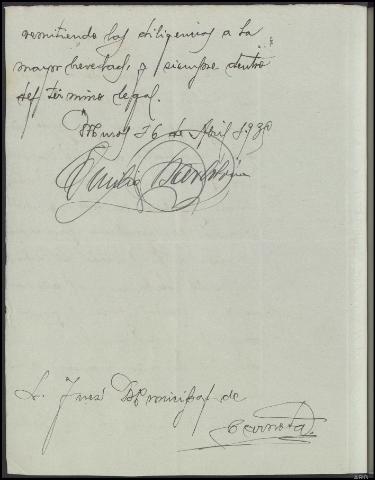 remitiendo las diligencias a la
mayor brevedad, y siempre dentro
del término legal.
Muros 26 de Abril 1930
Emilio
S. Juez Municipal de
Carnota.
ARG